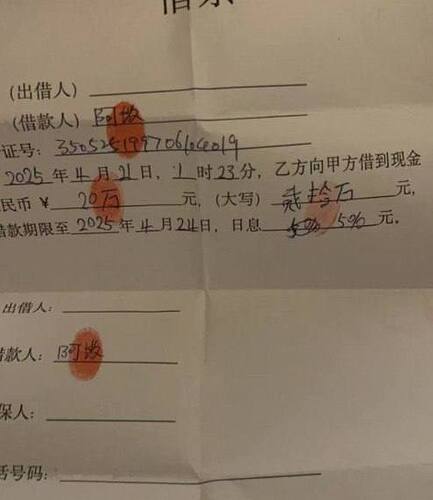 借条
(出借人)
(借款人) 阿
证号: 35052519970610
2025年4月21日, 1时23分, 乙方向甲方借到现金
民币 ¥ 20万 元, (大写) 贰拾万 元,
借款期限至 2025年4月24日, 日息 5% 5% 元.
出借人:
借款人: 阿
保人:
话号码: